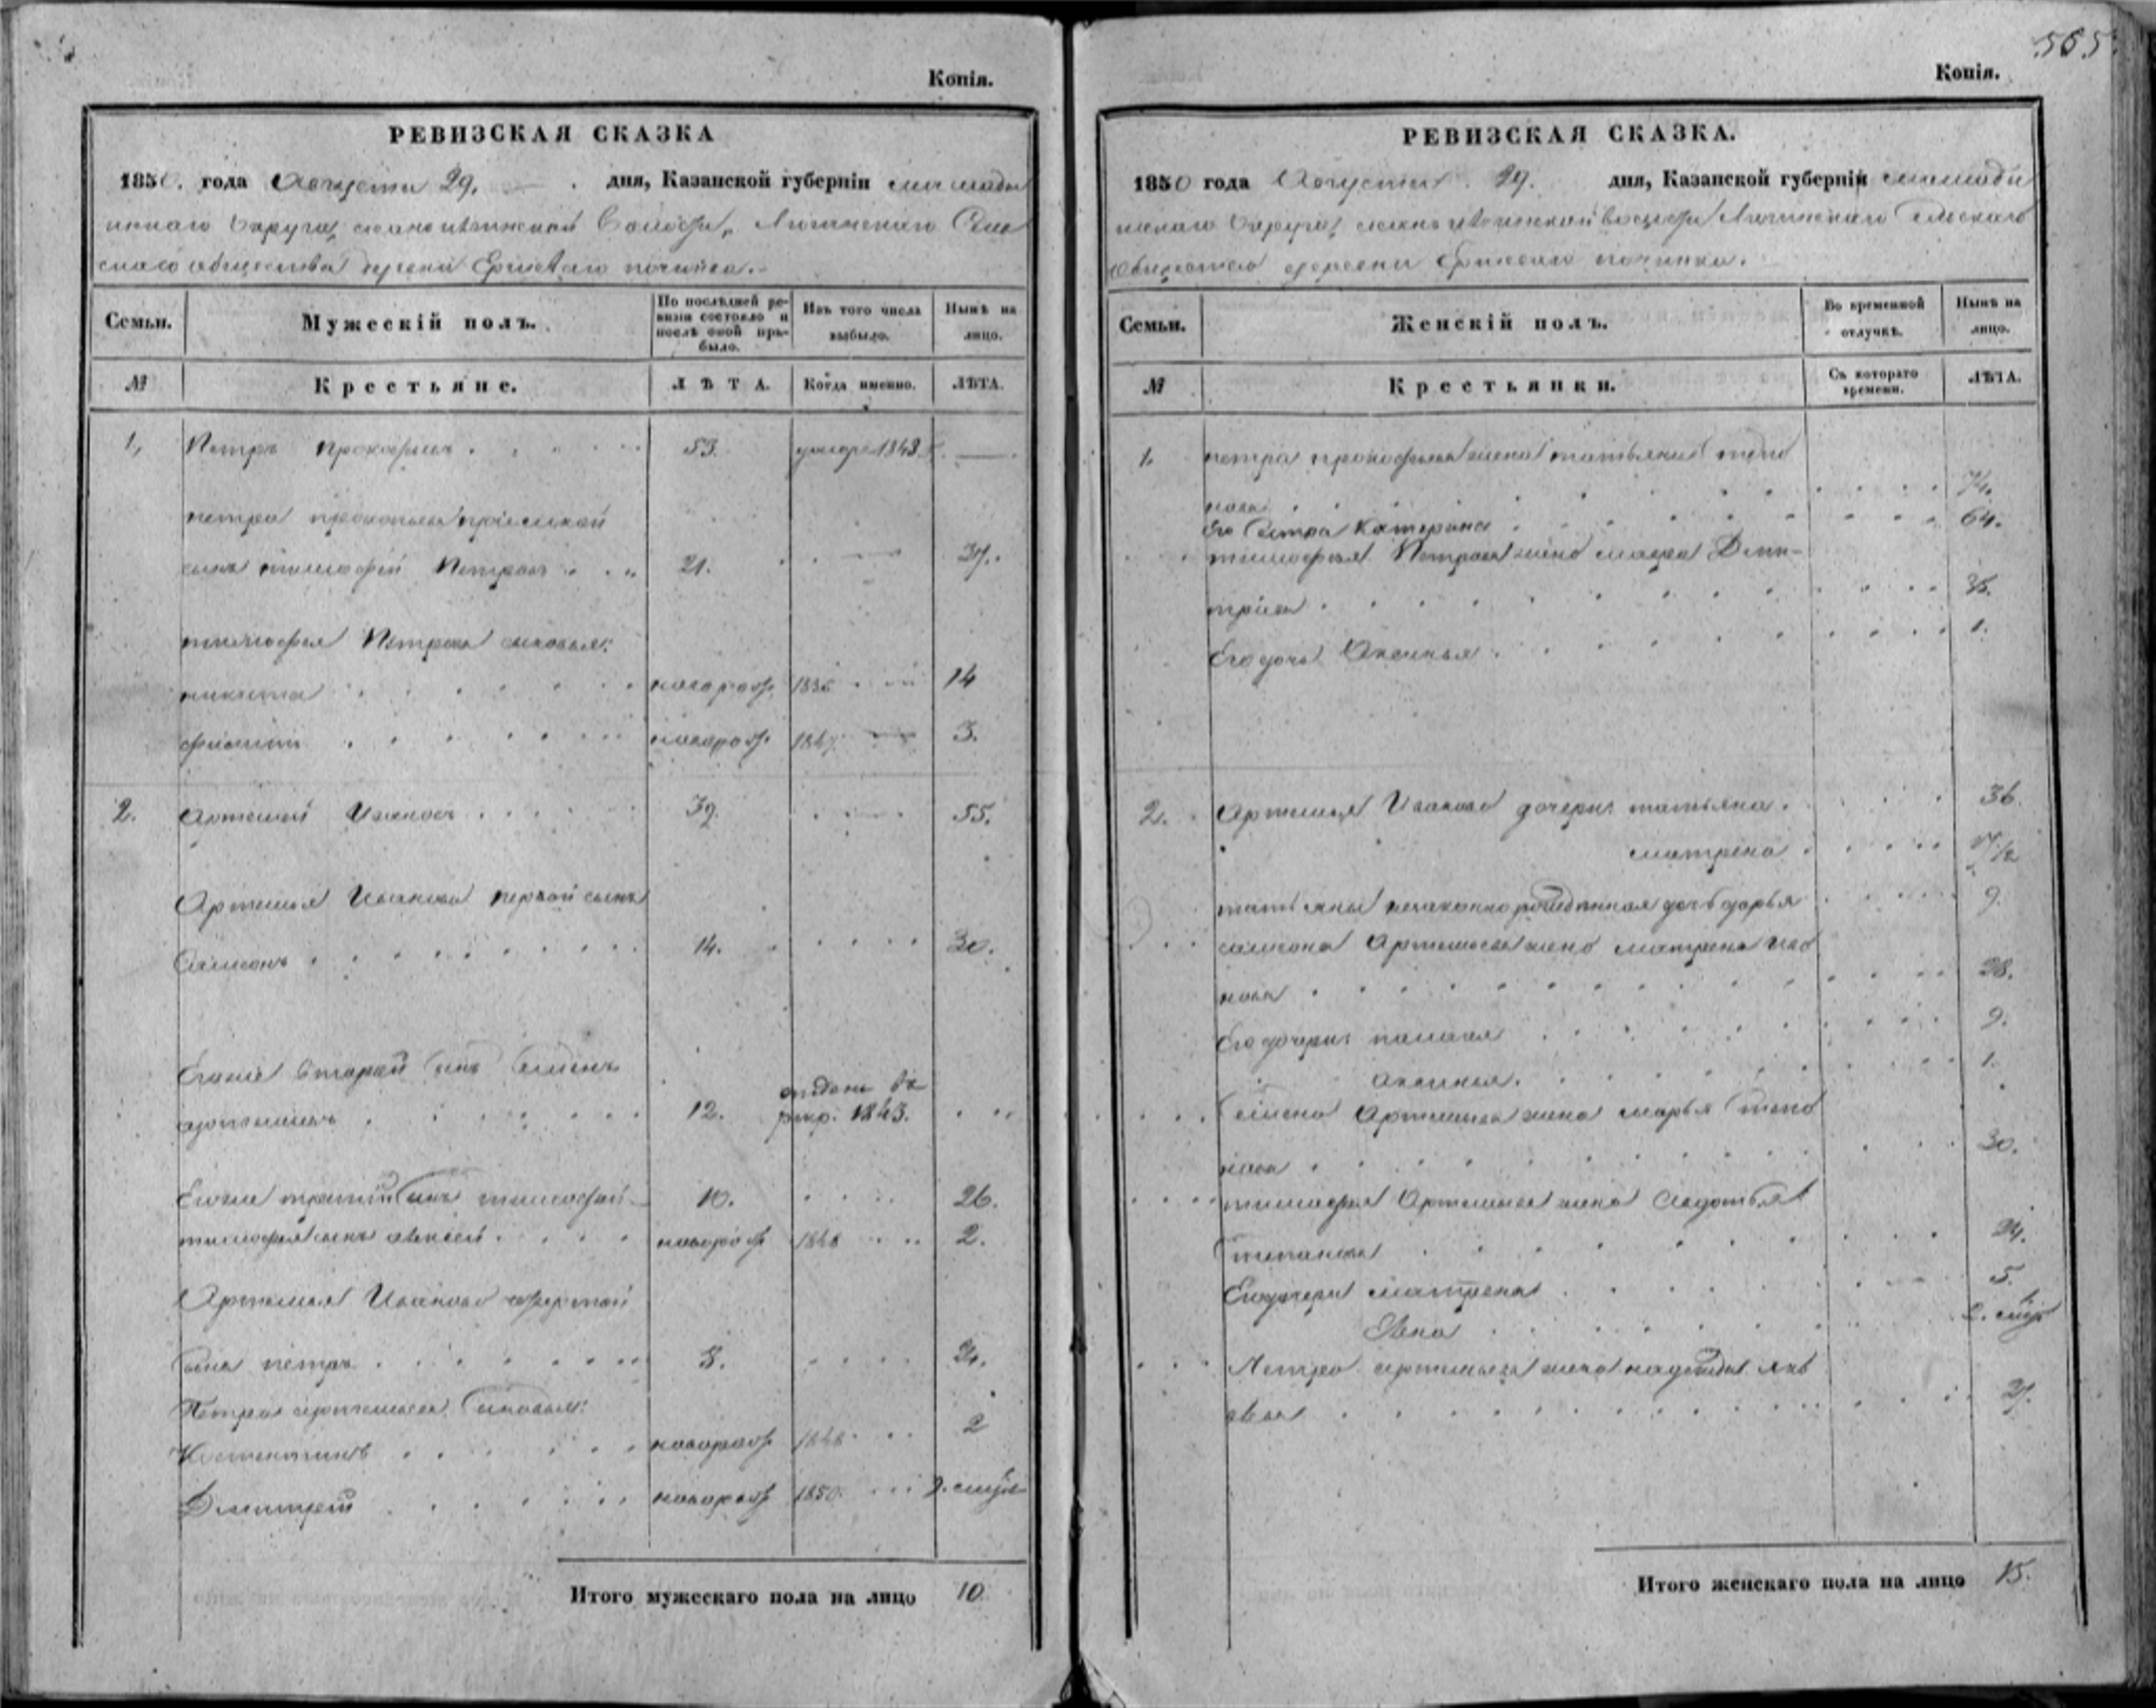 Копія.
РЕВИЗСКАЯ СКАЗКА
1850. года Августа 29. дня, Казанской губерніи мамады
шскаго Округа, Волости, Сель
скаго общества деревни починка.
Семьи.
Мужескій полъ.
По послѣдней ре-
визіи состояло и
послѣ оной при-
было.
Изъ того числа
выбыло.
Нынѣ на
лицо.
№
Крестьяне.
ЛѢТА.
Когда именно.
ЛѢТА.
1, Петръ Прокофьевъ 53. умеръ 1843
петра прокопьева приемной
сынъ тимофей Петровъ 21.
тимофея Петрова сыновья:
никита новорож 1836 14
филипп новорож 1847 3.
2. Артемий Ивановъ 39. 55.
Артемья Иванова первой сынъ
Самсонъ 14. 30.
Егоже второй сынъ Семенъ
артемьевъ 12. отданъ въ
рекр. 1843.
Егоже третий сынъ тимофей 10. 26.
тимофея сынъ алексей новорож 1848 2.
Артемья Иванова четвертой
сынъ петръ 8. 24.
Петра артемьева сыновья:
Костентинъ новорож 1848 2
Дмитрей новорож 1850
Итого мужескаго пола на лицо 10
565
Копія.
РЕВИЗСКАЯ СКАЗКА.
1850 года Августа 29. дня, Казанской губерніи мамады
шскаго Округа, волости Сельскаго
общества деревни починка.
Семьи.
Женскій полъ.
Во временной
отлучкѣ.
Нынѣ на
лицо.
№
Крестьянки.
Съ котораго
времени.
ЛѢТА.
1. петра прокофьева жена татьяна степа
нова 74.
Его сестра Катерина 64.
тимофея Петрова жена Дми-
триева
Его дочь Аксинья 1.
2. Артемья Иванова дочери: татьяна 36.
матрена 17 1/2
татьяны незаконно рожденная дочь дарья 9.
самсона Артемьева жена матрена Ива
нова 28.
Его дочери: палагея 9.
аксинья. 1.
Семена Артемьева жена марья степа
нова 30.
тимофея Артемьева жена Авдотья
степанова 24.
Его дочери матрена 5.
Анна
Петра артемьева жена надежда яков
лева 21.
Итого женскаго пола на лицо 15.